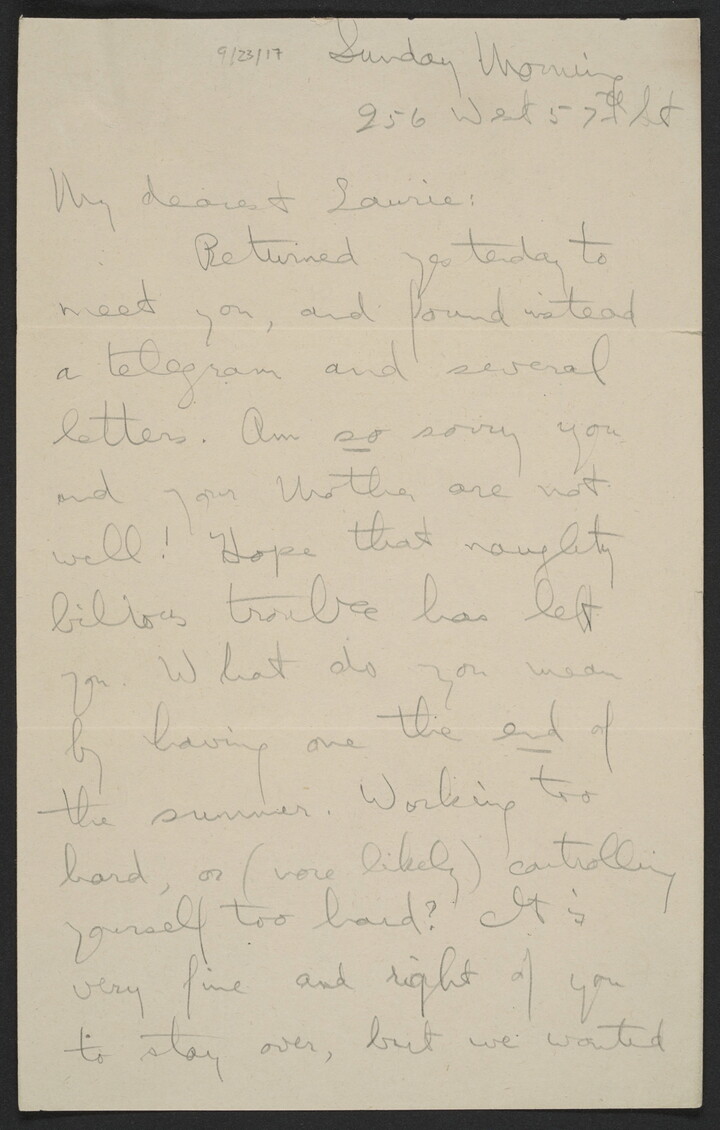 9/23/17 Sunday Morning
256 West 57th St
My dearest Laurie:
Returned yesterday to
meet you, and found instead
a telegram and several
letters. Am so sorry you
and your Mother are not
well! Hope that naughty
bilious trouble has left
you. What do you mean
by having one the end of
the summer. Working too
hard, or (more likely) controlling
yourself too hard? It is
very fine and right of you
to stay over, but we wanted